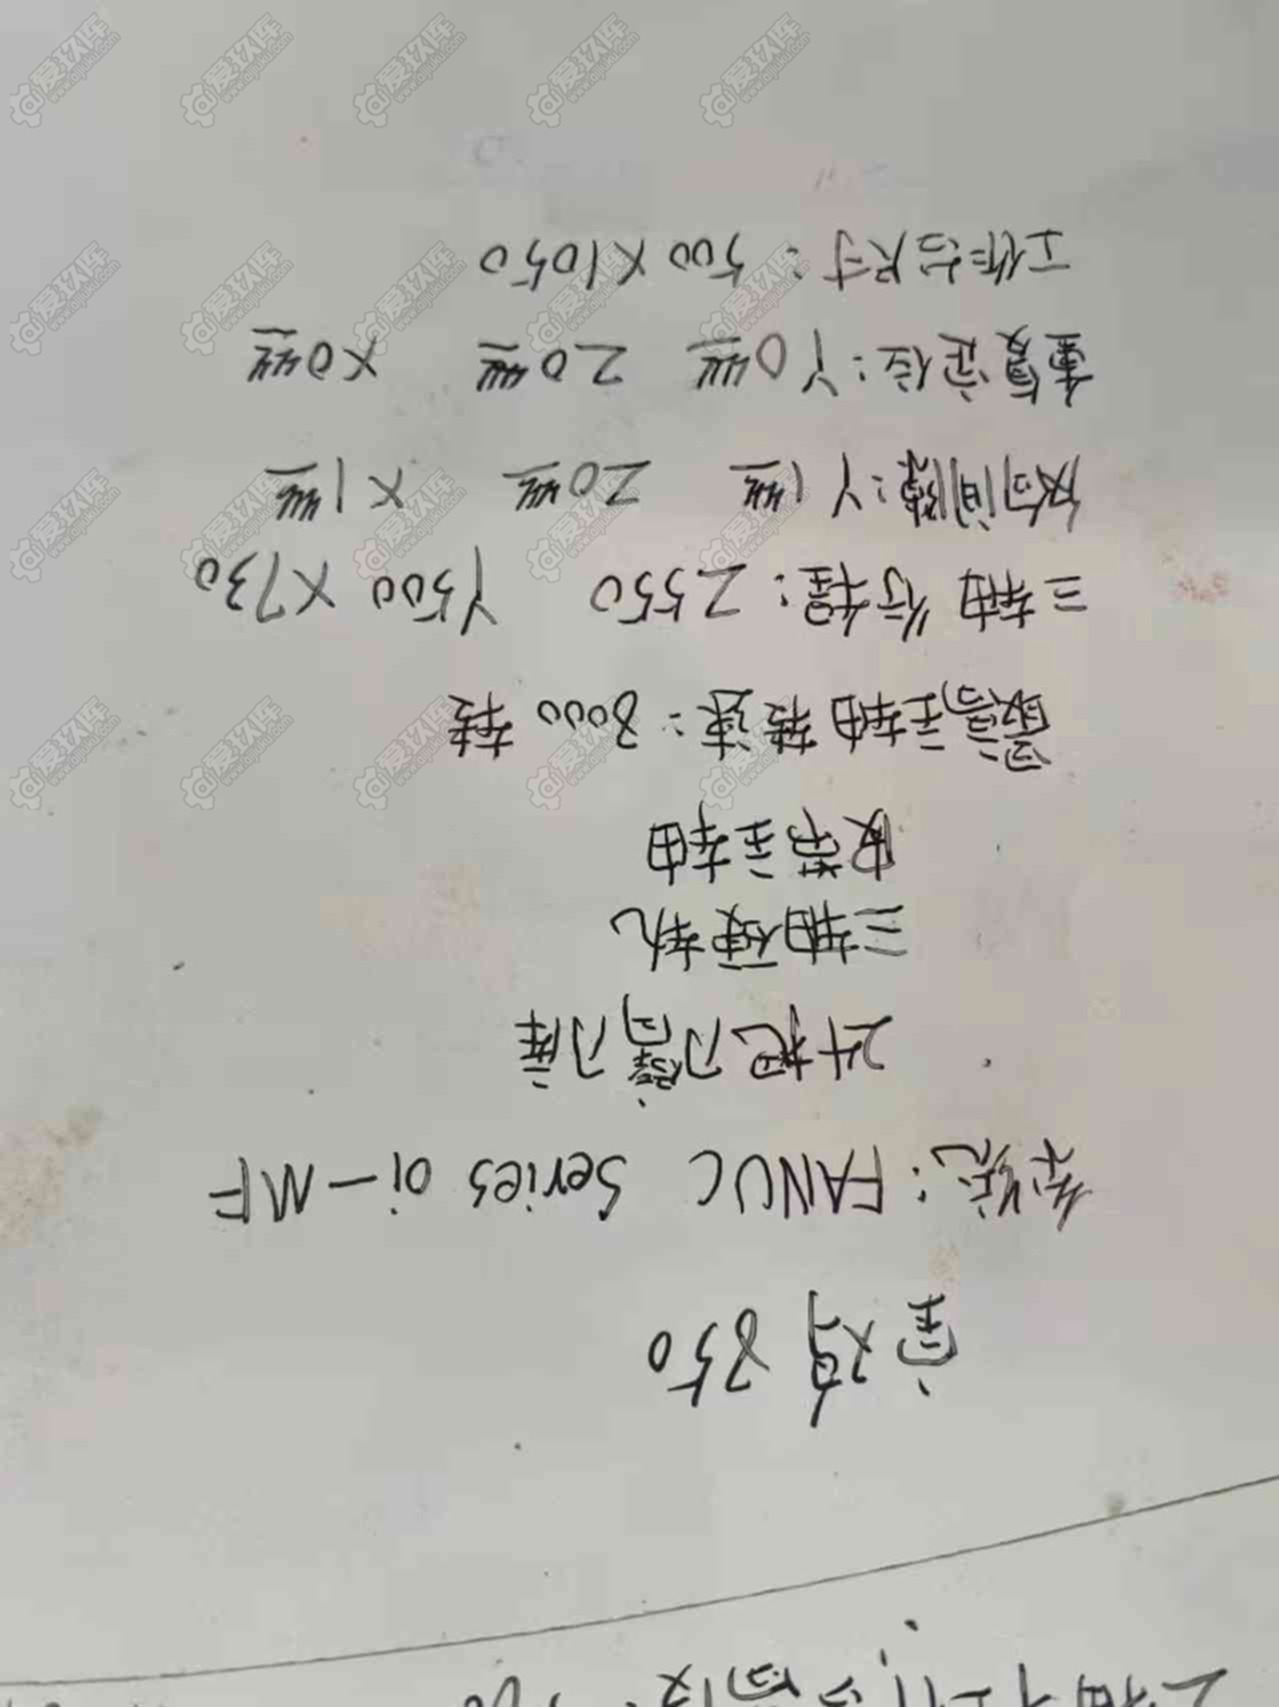 宝鸡 850
系统: FANUC Series 0i-MF
24把刀臂刀库
三轴硬轨
皮带主轴
最高主轴转速: 8000 转
三轴行程: Z550 Y500 X730
反向间隙: Y1丝 Z0丝 X1丝
重复定位: Y0丝 Z0丝 X0丝
工作台尺寸: 500X1050
爱玖库